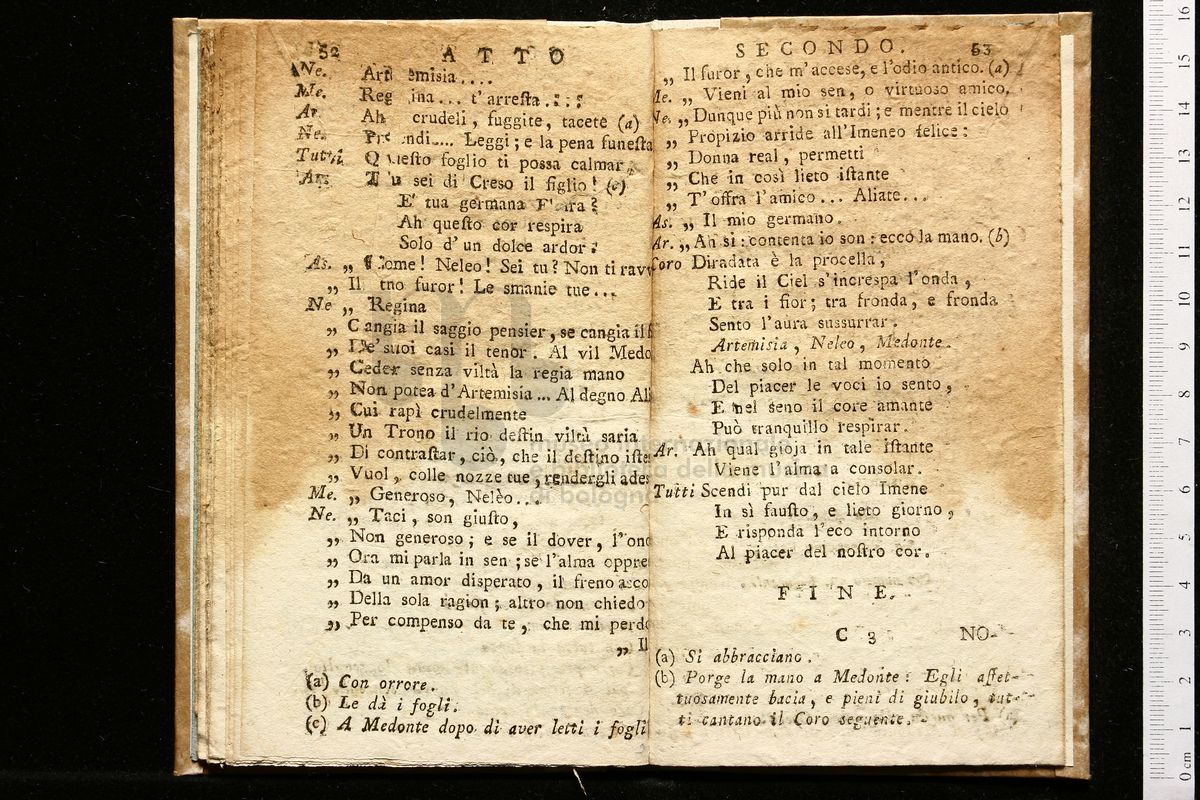 52 ATTO
Ne. Artemisia....
Me. Regina... t'arresta...
Ar. Ah crudeli, fuggite, tacete (a)
Ne. Prendi.... Leggi; e la pena funesta
Tutti Questo foglio ti possa calmar.
Ar. Tu sei di Creso il figlio! (c)
E' tua germana
Ah questo cor respira
Solo d'un dolce ardor:
As. „ Come! Neleo! Sei tu? Non ti ravv
„ Il tuo furor! Le smanie tue...
Ne „ Regina
„ Cangia il saggio pensier, se cangia il
„ De' suoi casi il tenor. Al vil Medo
„ Ceder senza viltà la regia mano
„ Non potea d'Artemisia... Al degno Al
„ Cui rapì crudelmente
„ Un Trono il rio destin viltà saria
„ Di contrastar, ciò, che il destino iste
„ Vuol, colle nozze tue, rendergli ades
Me. „ Generoso, Nelèo...
Ne. „ Taci, son giusto,
„ Non generoso; e se il dover, l'ono
„ Ora mi parla in sen; se l'alma oppre
„ Da un amor disperato, il freno asco
„ Della sola ragion; altro non chiedo
„ Per compenso da te, che mi perdo
„ Il
(a) Con orrore.
(b) Le dà i fogli.
(c) A Medonte dopo di aver letti i fogli
SECONDO. 53
„ Il furor, che m'accese, e l'odio antico. (a)
Me. „ Vieni al mio sen, o virtuoso amico,
Ne. „ Dunque più non si tardi; e mentre il cielo
„ Propizio arride all'Imeneo felice:
„ Donna real, permetti
„ Che in così lieto istante
„ T'offra l'amico... Aliate...
As. „ Il mio germano.
Ar. „ Ah si: contenta io son: ecco la mano. (b)
Coro Diradata è la procella,
Ride il Ciel s'increspa l'onda,
E tra i fior; tra fronda, e fronda
Sento l'aura sussurrar.
Artemisia, Neleo, Medonte.
Ah che solo in tal momento
Del piacer le voci io sento,
E nel seno il core amante
Può tranquillo respirar.
Ar. Ah qual gioja in tale istante
Viene l'alma a consolar.
Tutti Scendi pur dal cielo Imene
In sì fausto, e lieto giorno,
E risponda l'eco intorno
Al piacer del nostro cor.
FINE.
C 3 NO-
(a) Si abbracciano.
(b) Porge la mano a Medonte: Egli affet-
tuosamente bacia, e pieni di giubilo, tut-
ti cantano il Coro seguente.